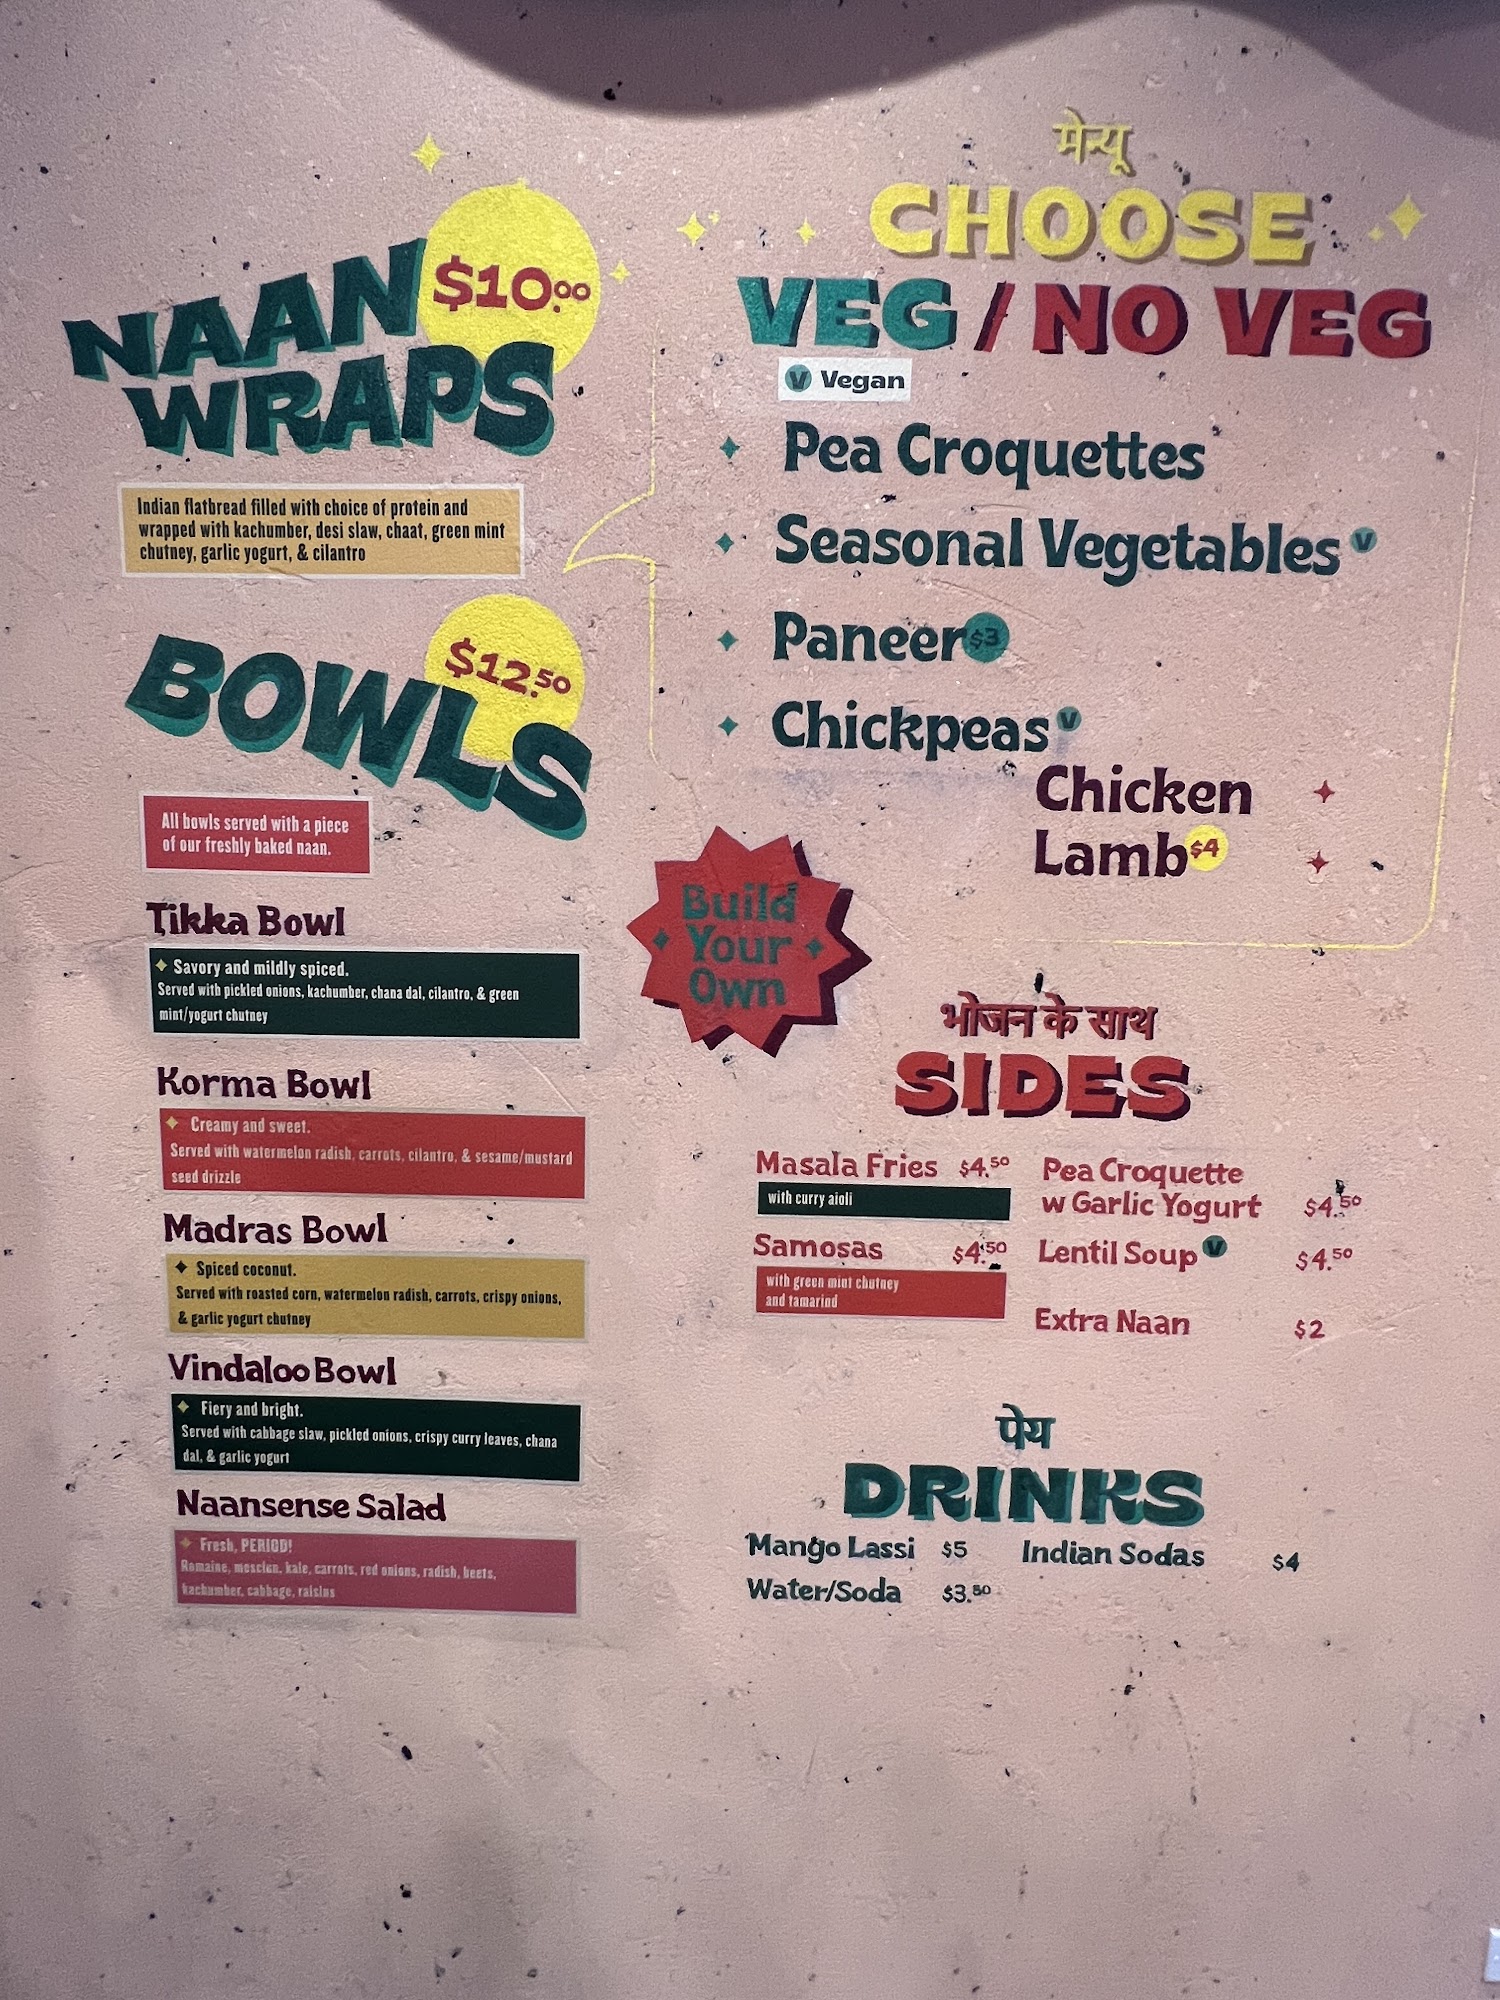 NAAN
$10.00
WRAPS
Indian flatbread filled with choice of protein and
wrapped with kachumber, desi slaw, chaat, green mint
chutney, garlic yogurt, & cilantro
BOWLS
$12.50
All bowls served with a piece
of our freshly baked naan.
Tikka Bowl
Savory and mildly spiced.
Served with pickled onions, kachumber, chana dal, cilantro, & green
mint/yogurt chutney
Korma Bowl
Creamy and sweet.
Served with watermelon radish, carrots, cilantro, & sesame/mustard
seed drizzle
Madras Bowl
Spiced coconut.
Served with roasted corn, watermelon radish, carrots, crispy onions,
& garlic yogurt chutney
Vindaloo Bowl
Fiery and bright.
Served with cabbage slaw, pickled onions, crispy curry leaves, chana
dal, & garlic yogurt
Naansense Salad
Fresh, PERIOD!
Romaine, mesclun, kale, carrots, red onions, radish, beets,
kachumber, cabbage, raisins
मेन्यू
CHOOSE
VEG / NO VEG
V Vegan
Pea Croquettes
Seasonal Vegetables V
Paneer $3
Chickpeas V
Chicken
Lamb $4
Build
Your
Own
भोजन के साथ
SIDES
Masala Fries $4.50
with curry aioli
Samosas $4.50
with green mint chutney
and tamarind
Pea Croquette
w Garlic Yogurt $4.50
Lentil Soup V $4.50
Extra Naan $2
पेय
DRINKS
Mango Lassi $5
Water/Soda $3.50
Indian Sodas $4